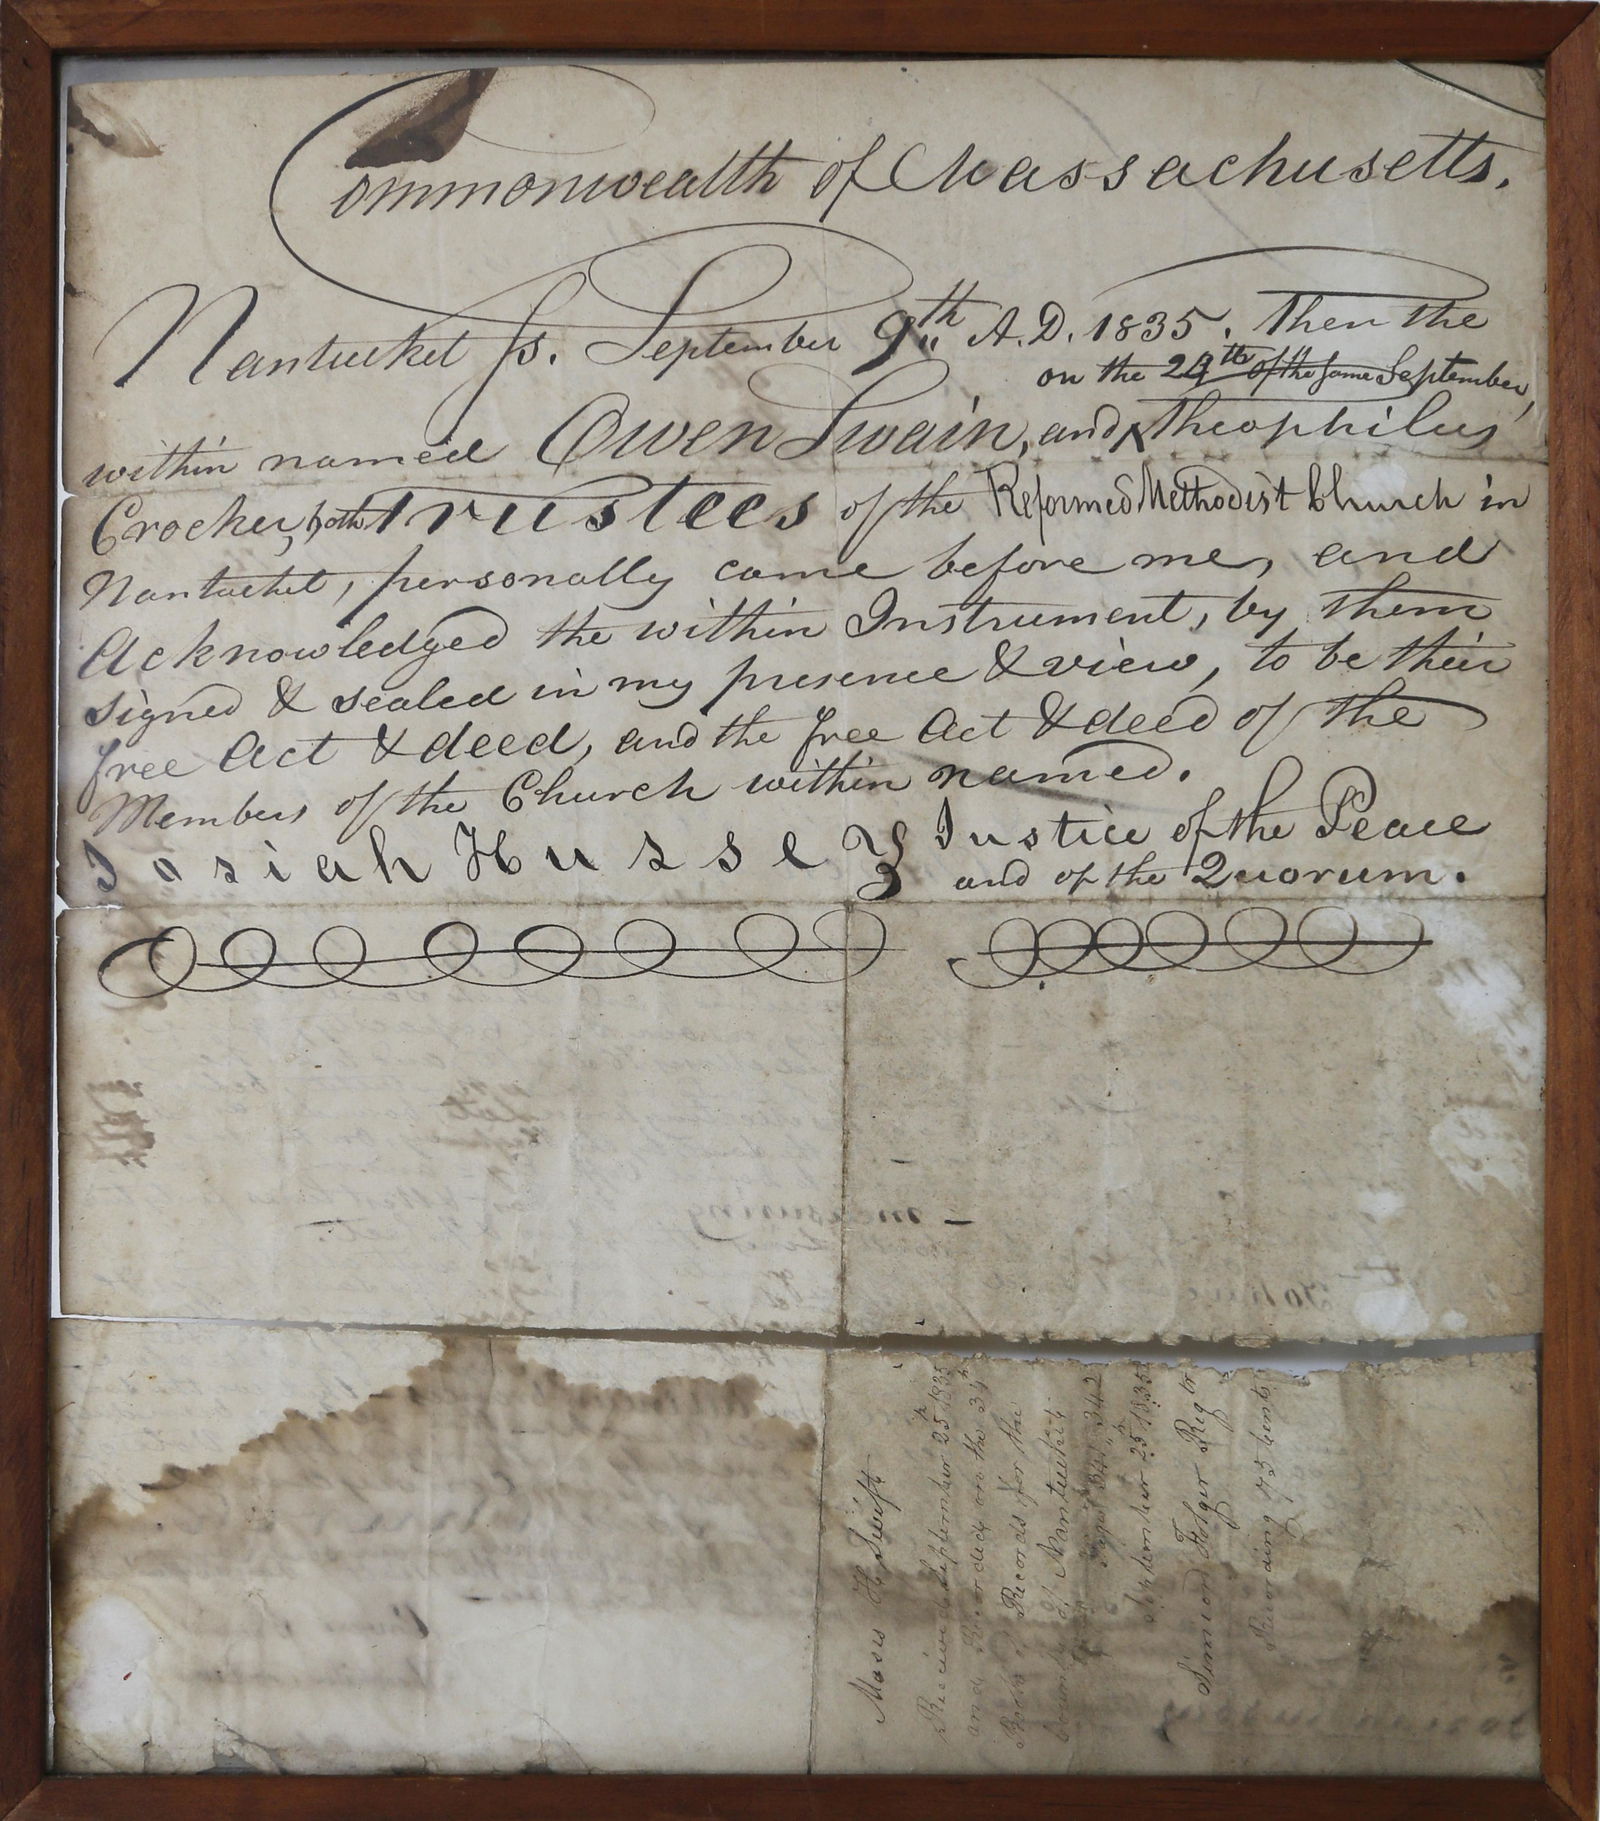 Commonwealth of Massachusetts.
Nantucket ss. September 9th A.D. 1835. Then the
on the 24th of the same September,
within named Owen Swain, and Theophilus
Crocker, both Trustees of the Reformed Methodist Church in
Nantucket, personally came before me, and
Acknowledged the within Instrument, by them
signed & sealed in my presence & view, to be their
free Act & deed, and the free Act & deed of the
Members of the Church within named.
Josiah Hussey Justice of the Peace
and of the Quorum.
Moses H Swift
Received September 25th 1835
and Recorded on the 34th
Book of Records for the
County of Nantucket
Pages 341" 342
September 25th 1835
Simeon Folger Reg tr
Recording 75 Cents